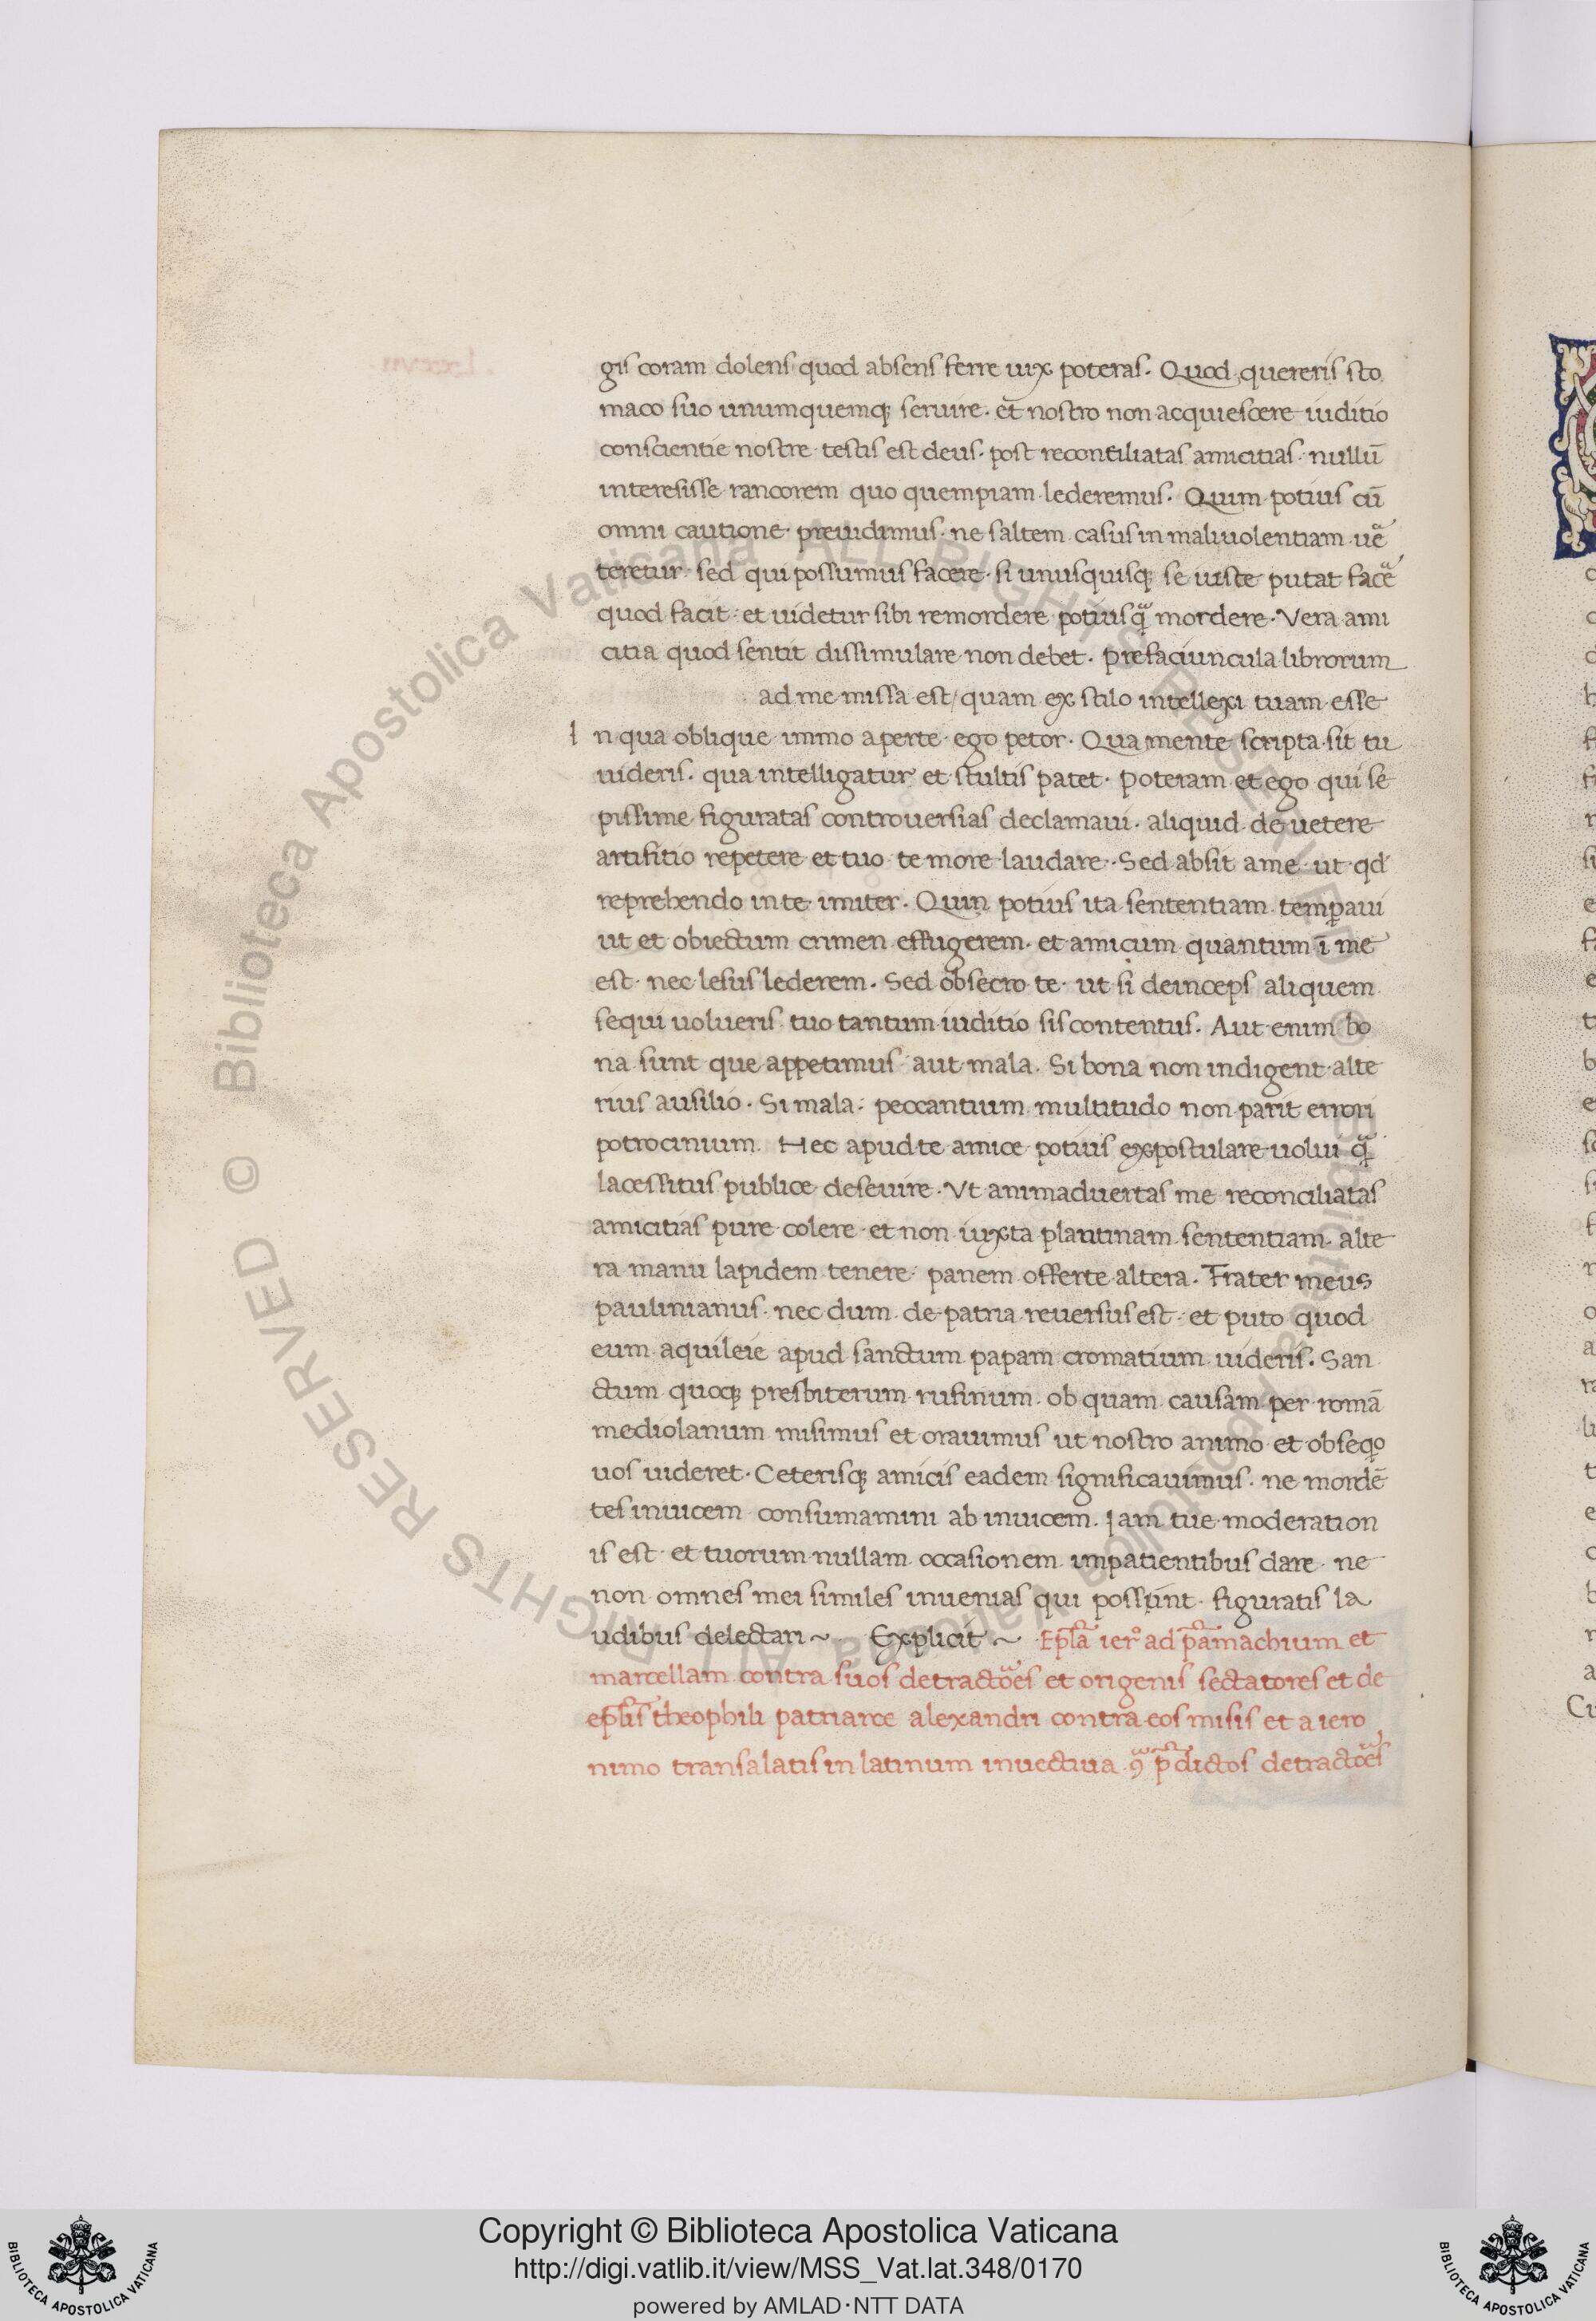 gis coram dolens quod absens ferre uix poteras. Quod quereris sto
maco suo unumquemq; seruire. et nostro non acquiescere iuditio
conscientie nostre testis est deus. post reconciliatas amicitias. nullū
interesisse rancorem quo quempiam lederemus. Quim potius cū
omni cautione preuidimus. ne saltem casus in maliuolentiam ue
teretur. sed qui possumus facere. si unusquisq; se iuste putat face
quod facit: et uidetur sibi remordere potiusq̃ mordere. Vera ami
citia quod sentit dissimulare non debet. prefaciuncula librorum
ad me missa est/ quam ex stilo intellexi tuam esse
i n qua oblique immo aperte ego petor. Qua mente scripta sit tu
uideris. qua intelligatur et stultis patet. poteram et ego qui se
pissime figuratas controuersias declamaui. aliquid de uetere
artifitio repetere et tuo te more laudare. Sed absit ame ut qd
reprehendo inte imiter. Quin potius ita sententiam temp̱aui
ut et obiectum crimen effugerem. et amicum quantum ī me
est. nec lesus lederem. Sed obsecro te. ut si deinceps aliquem
sequi uolueris tuo tantum iuditio sis contentus. Aut enim bo
na sunt que appetimus aut mala. Si bona non indigent alte
rius ausilio. Si mala: peccantium multitudo non parit errori
potrocinium. Hec apud te amice potius expostulare uolui q̃
lacessitus publice deseuire. Vt animaduertas me reconciliatas
amicitias pure colere et non iuxta plautinam sententiam. alte
ra manu lapidem tenere panem offerte altera. Frater meus
paulinianus. nec dum de patria reuersus est. et puto quod
eum aquileie apud sanctum papam cromatium uideris. San
ctum quoq; presbiterum rufinum. ob quam causam per romā
mediolanum misimus et orauimus ut nostro animo et obseqo
uos uideret. Ceterisq; amicis eadem significauimus. ne mordē
tes inuicem consumamini ab inuicem. Jam tue moderation
is est et tuorum nullam occasionem impatientibus dare ne
non omnes mei similes inuenias qui possunt figuratis la
udibus delectari ~ Explicit ~ Ep̄la ier° ad pamachium et
marcellam contra suos detractoes et origenis sectatores et de
ep̄lis theophili patriarce alexandri contra eos misis et a iero
nimo transalatis in latinum inuectiua ꝯ p̄dictos detractoes
© Biblioteca Apostolica Vaticana ALL RIGHTS RESERVED © Biblioteca Apostolica Vaticana ALL RIGHTS RESERVED
Copyright © Biblioteca Apostolica Vaticana
http://digi.vatlib.it/view/MSS_Vat.lat.348/0170
powered by AMLAD·NTT DATA
BIBLIOTECA APOSTOLICA VATICANA
BIBLIOTECA APOSTOLICA VATICANA